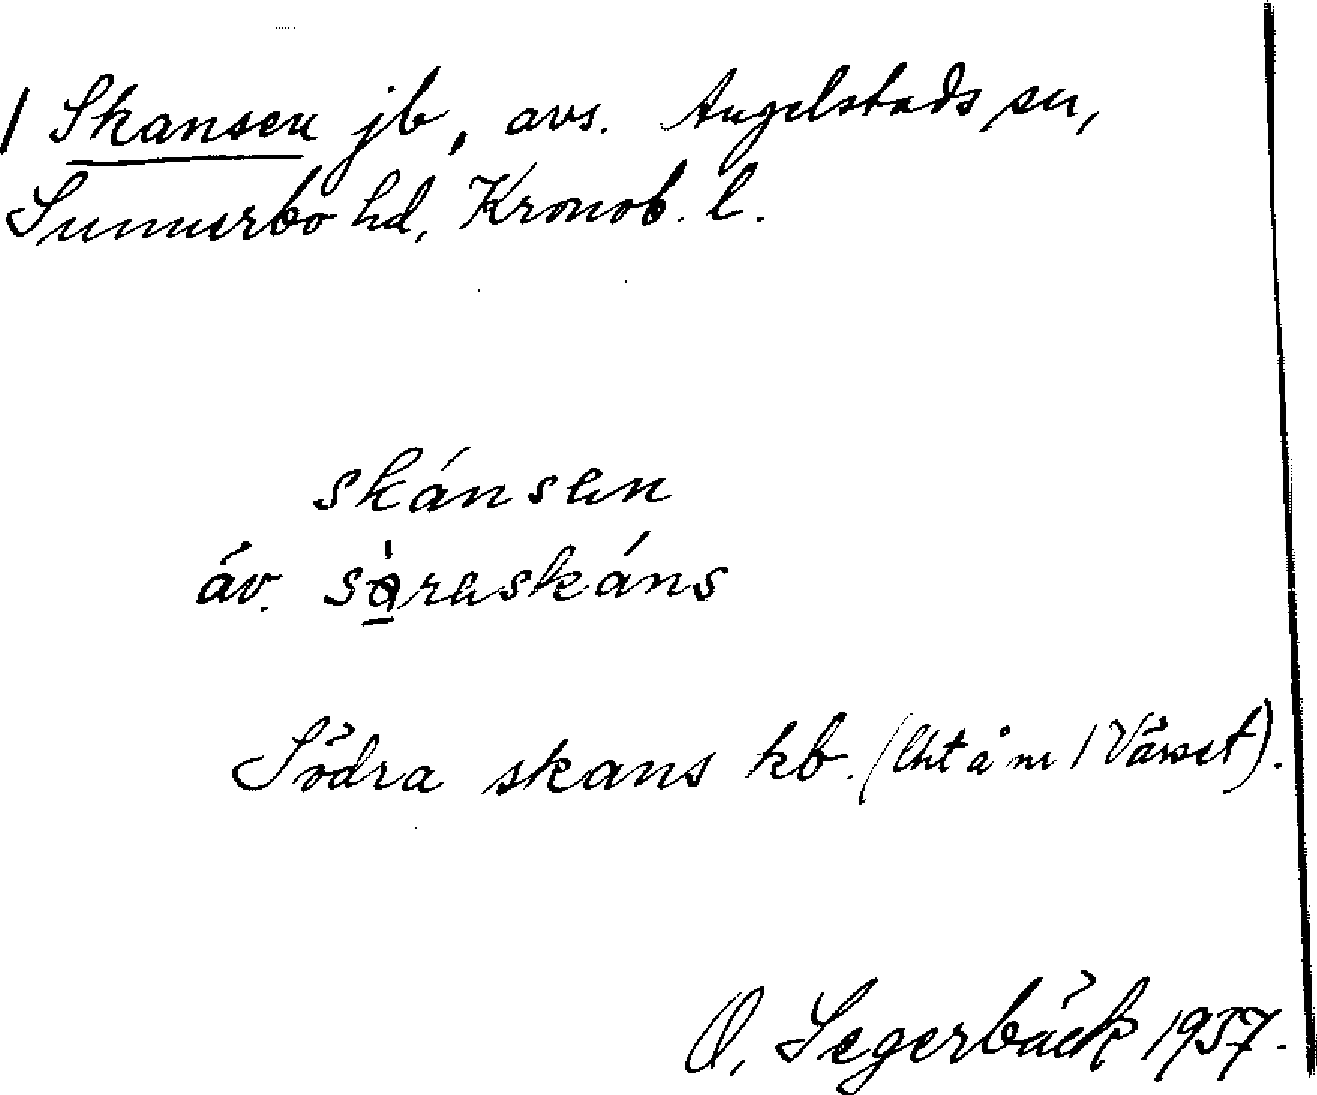 1 Skansen jb, avs. Angelstads sn,
Sunnerbo hd, Kronob. l.
skánsen
äv. sǫ̀raskáns
Södra skans kb. (lht å nr 1 Vässet).
O. Segerbäck 1937.